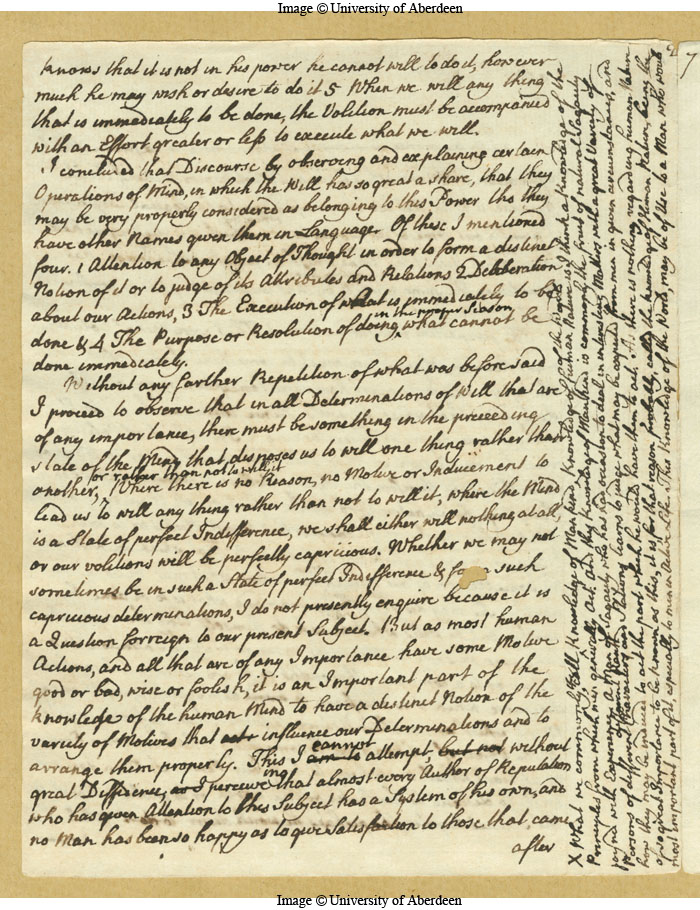 Image © University of Aberdeen
7
knows that it is not in his power he cannot will to do it, however
much he may wish or desire to do it 5 When we will any thing
that is immediately to be done, the Volition must be accompanied
with an Effort greater or less to execute what we will.
I concluded that Discourse by observing and explaining certain
Operations of Mind, in which the Will has so great a share, that they
may be very properly considered as belonging to this Power tho they
have other Names given them in Language. Of these I mentioned
four. 1 Attention to any Object of Thought in order to form a distinct
Notion of it or to judge of its Attributes and Relations 2 Deliberation
about our Actions, 3 The Execution of what is immediately to be
in the proper Season
done & 4 The Purpose or Resolution of doing what cannot be
done immediately.
Without any farther Repetition of what was before said
I proceed to observe that in all Determinations of Will that are
of any importance, there must be something in the preceeding
state of the Mind that disposes us to will one thing rather than
or rather than not to will it
another, Where there is no Reason, no Motive or Inducement to
lead us to will any thing rather than not to will it, where the Mind
is a State of perfect Indifference, we shall either will nothing at all,
or our volitions will be perfectly capricious. Whether we may not
sometimes be in such a State of perfect Indifference & such
capricious determinations, I do not presently enquire because it is
a Question forreign to our present Subject. But as most human
Actions, and all that are of any Importance have some Motive
good or bad, wise or foolish, it is an Important part of the
knowledge of the human Mind to have a distinct Notion of the
variety of Motives that influence our Determinations and to
cannot
arrange them properly. This I am to attempt, but not without
ing
great Diffidence, as I perceive that almost every Author of Reputation
who has given Attention to this Subject has a System of his own, and
no Man has been so happy as to give satisfaction to those that came
after
X What we commonly call Knowledge of Mankind, Knowledge of the World, Knowledge of human Nature is I think a Knowledge of the
Principles from which men generally Act, and this Knowledge of Mankind is commonly the fruit of natural Sagacity
joyned with Experience. A Man of Sagacity who has had occasion to deal in interesting Matters with a great Variety of
Persons of different Characters and Stations learns to judge what may be expected from men in given circumstances, and
how they may be induced to act the part which he would have them to act. As there is nothing regarding human Nature
of so great Importance to be known as this, it is for that reason probably called the knowledge of human Nature, being the
most important part of it, especially to men in active life. This Knowledge of the World, may be of Use to a Man who would
Image © University of Aberdeen